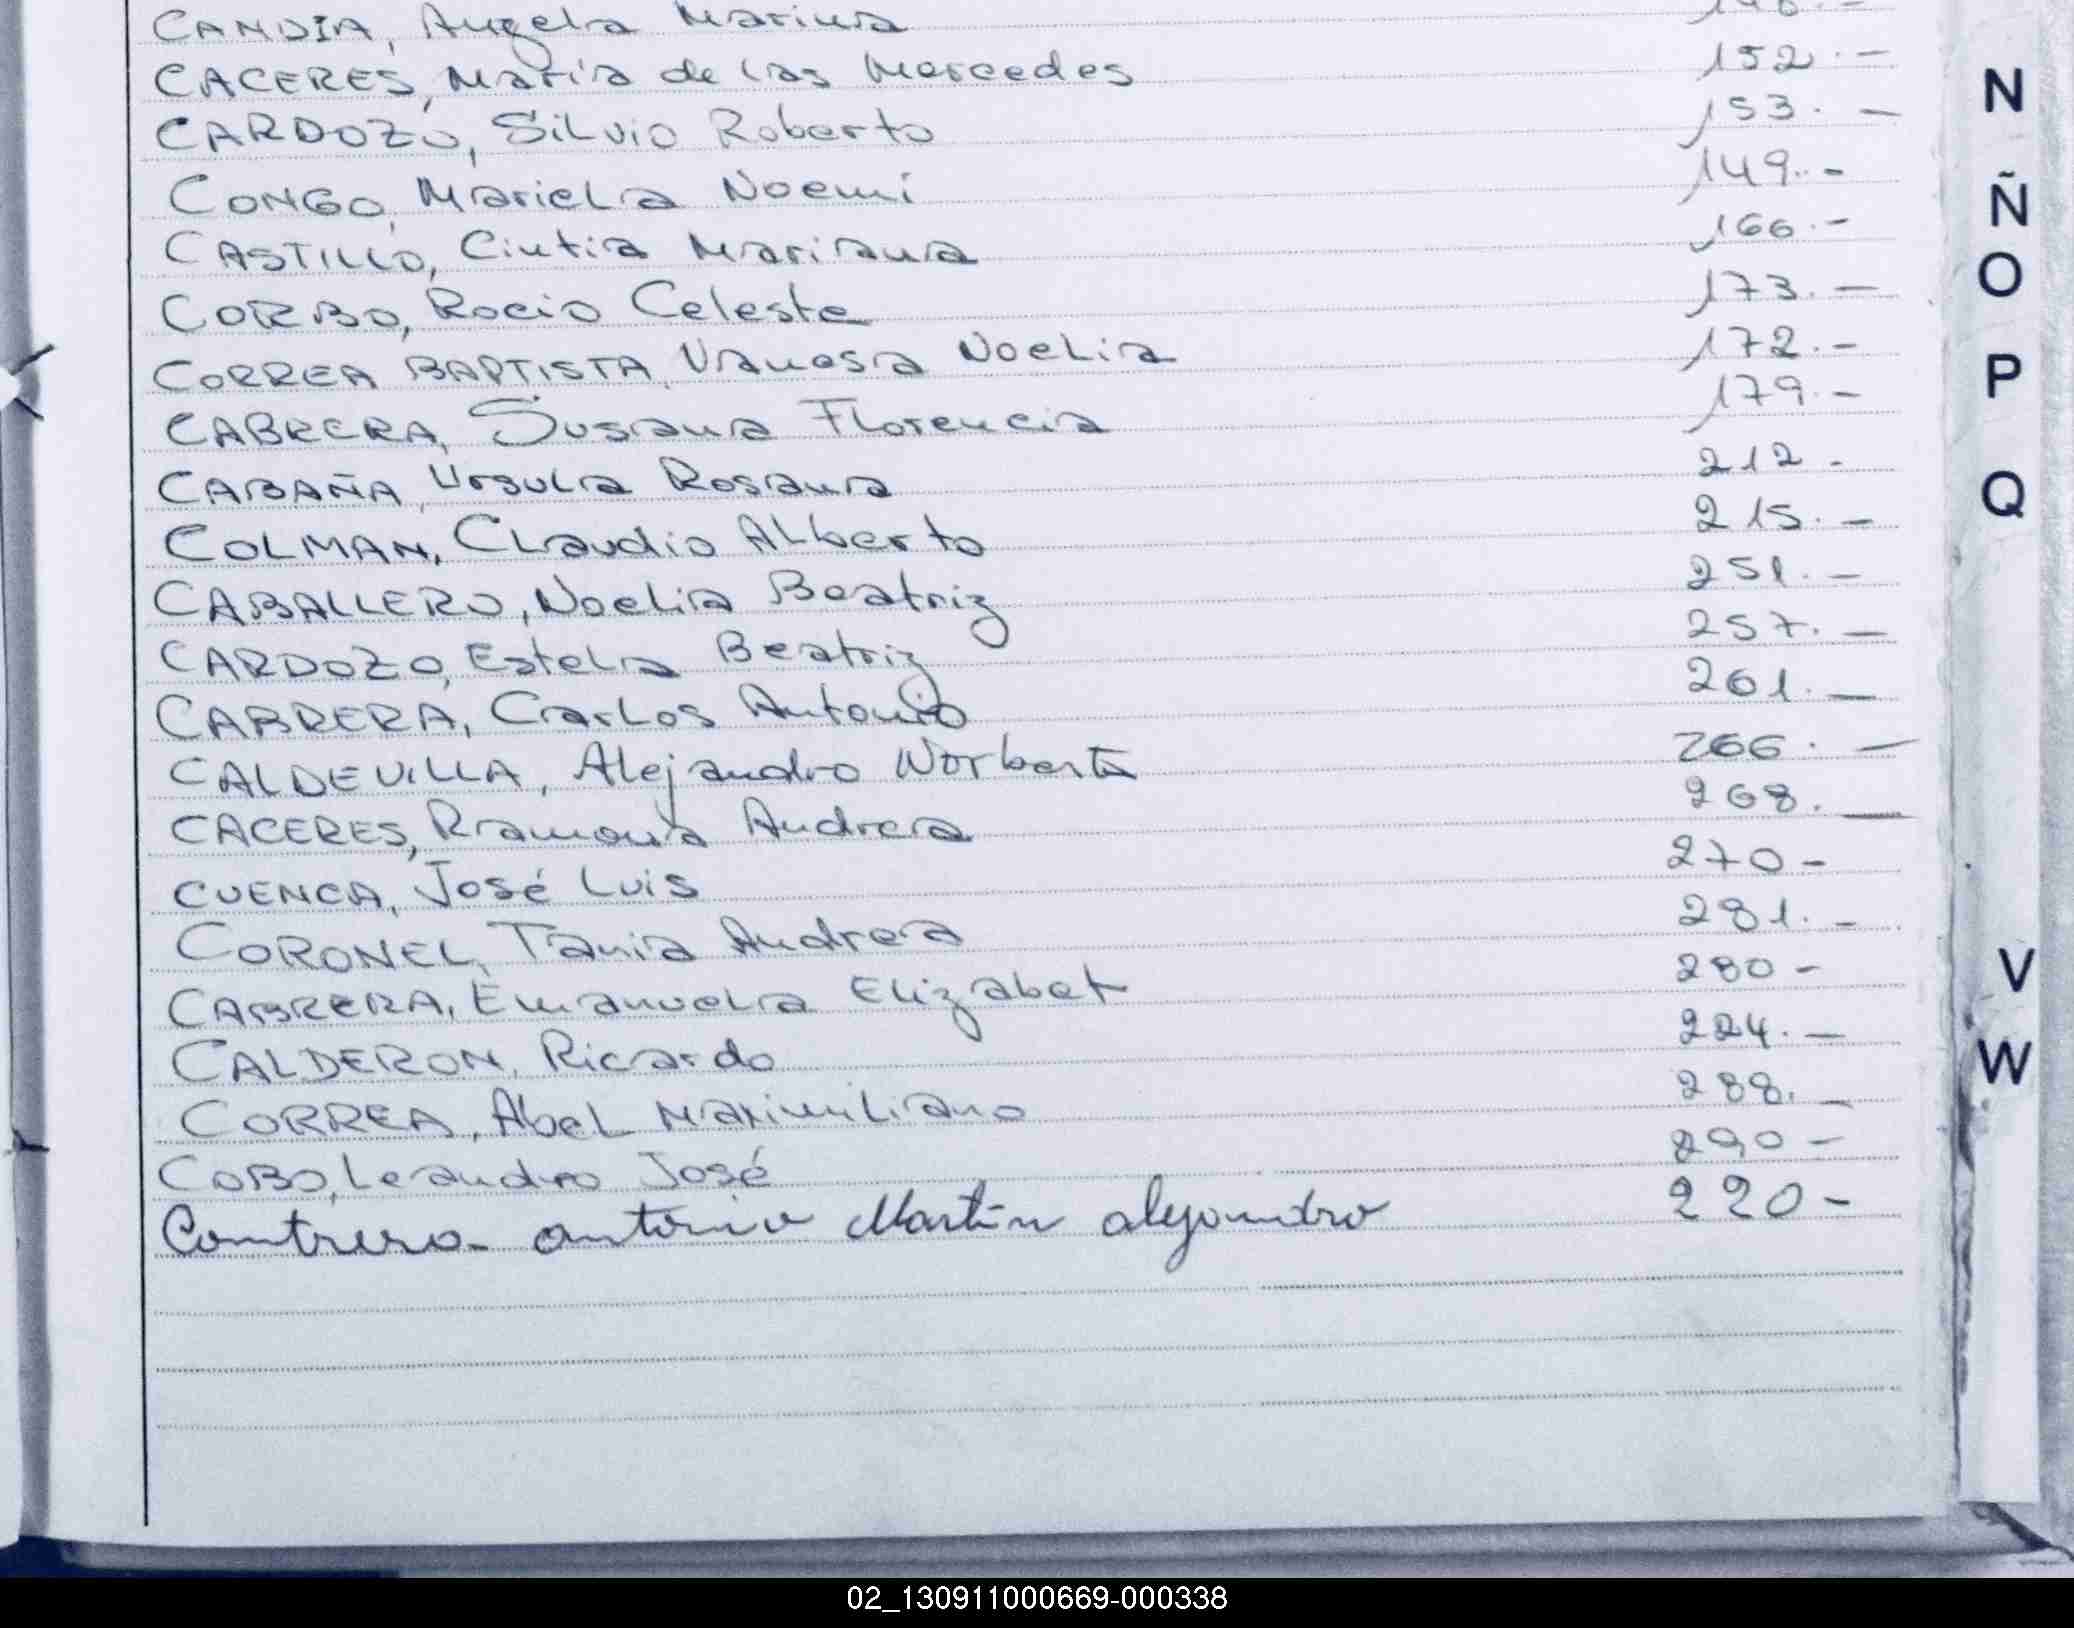 CANDIA, Angela Marina 148.-
CACERES, Maria de las Mercedes 152.-
CARDOZO, Silvio Roberto 153.-
CONGO, Mariela Noemi 149.-
CASTILLO, Cintia Mariana 166.-
CORBO, Rocio Celeste 173.-
CORREA BAPTISTA, Vanesa Noelia 172.-
CABRERA, Susana Florencia 179.-
CABAÑA, Ursula Rosana 212.-
COLMAN, Claudio Alberto 215.-
CABALLERO, Noelia Beatriz 251.-
CARDOZO, Estela Beatriz 257.-
CABRERA, Carlos Antonio 261.-
CALDEVILLA, Alejandro Norberto 266.-
CACERES, Ramona Andrea 268.-
CUENCA, José Luis 270-
CORONEL, Tania Andrea 281.-
CABRERA, Emanuela Elizabet 280-
CALDERON, Ricardo 224.-
CORREA, Abel Maximiliano 288.-
COBO, Leandro José 290-
Contrera antonio Martín alejandro 220-
N
Ñ
O
P
Q
V
W
02_130911000669-000338